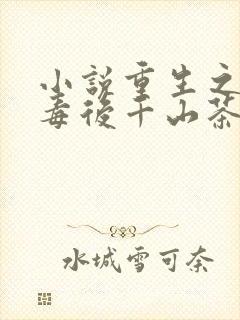 小說重生之
毒後千山茶
水城雪可奈